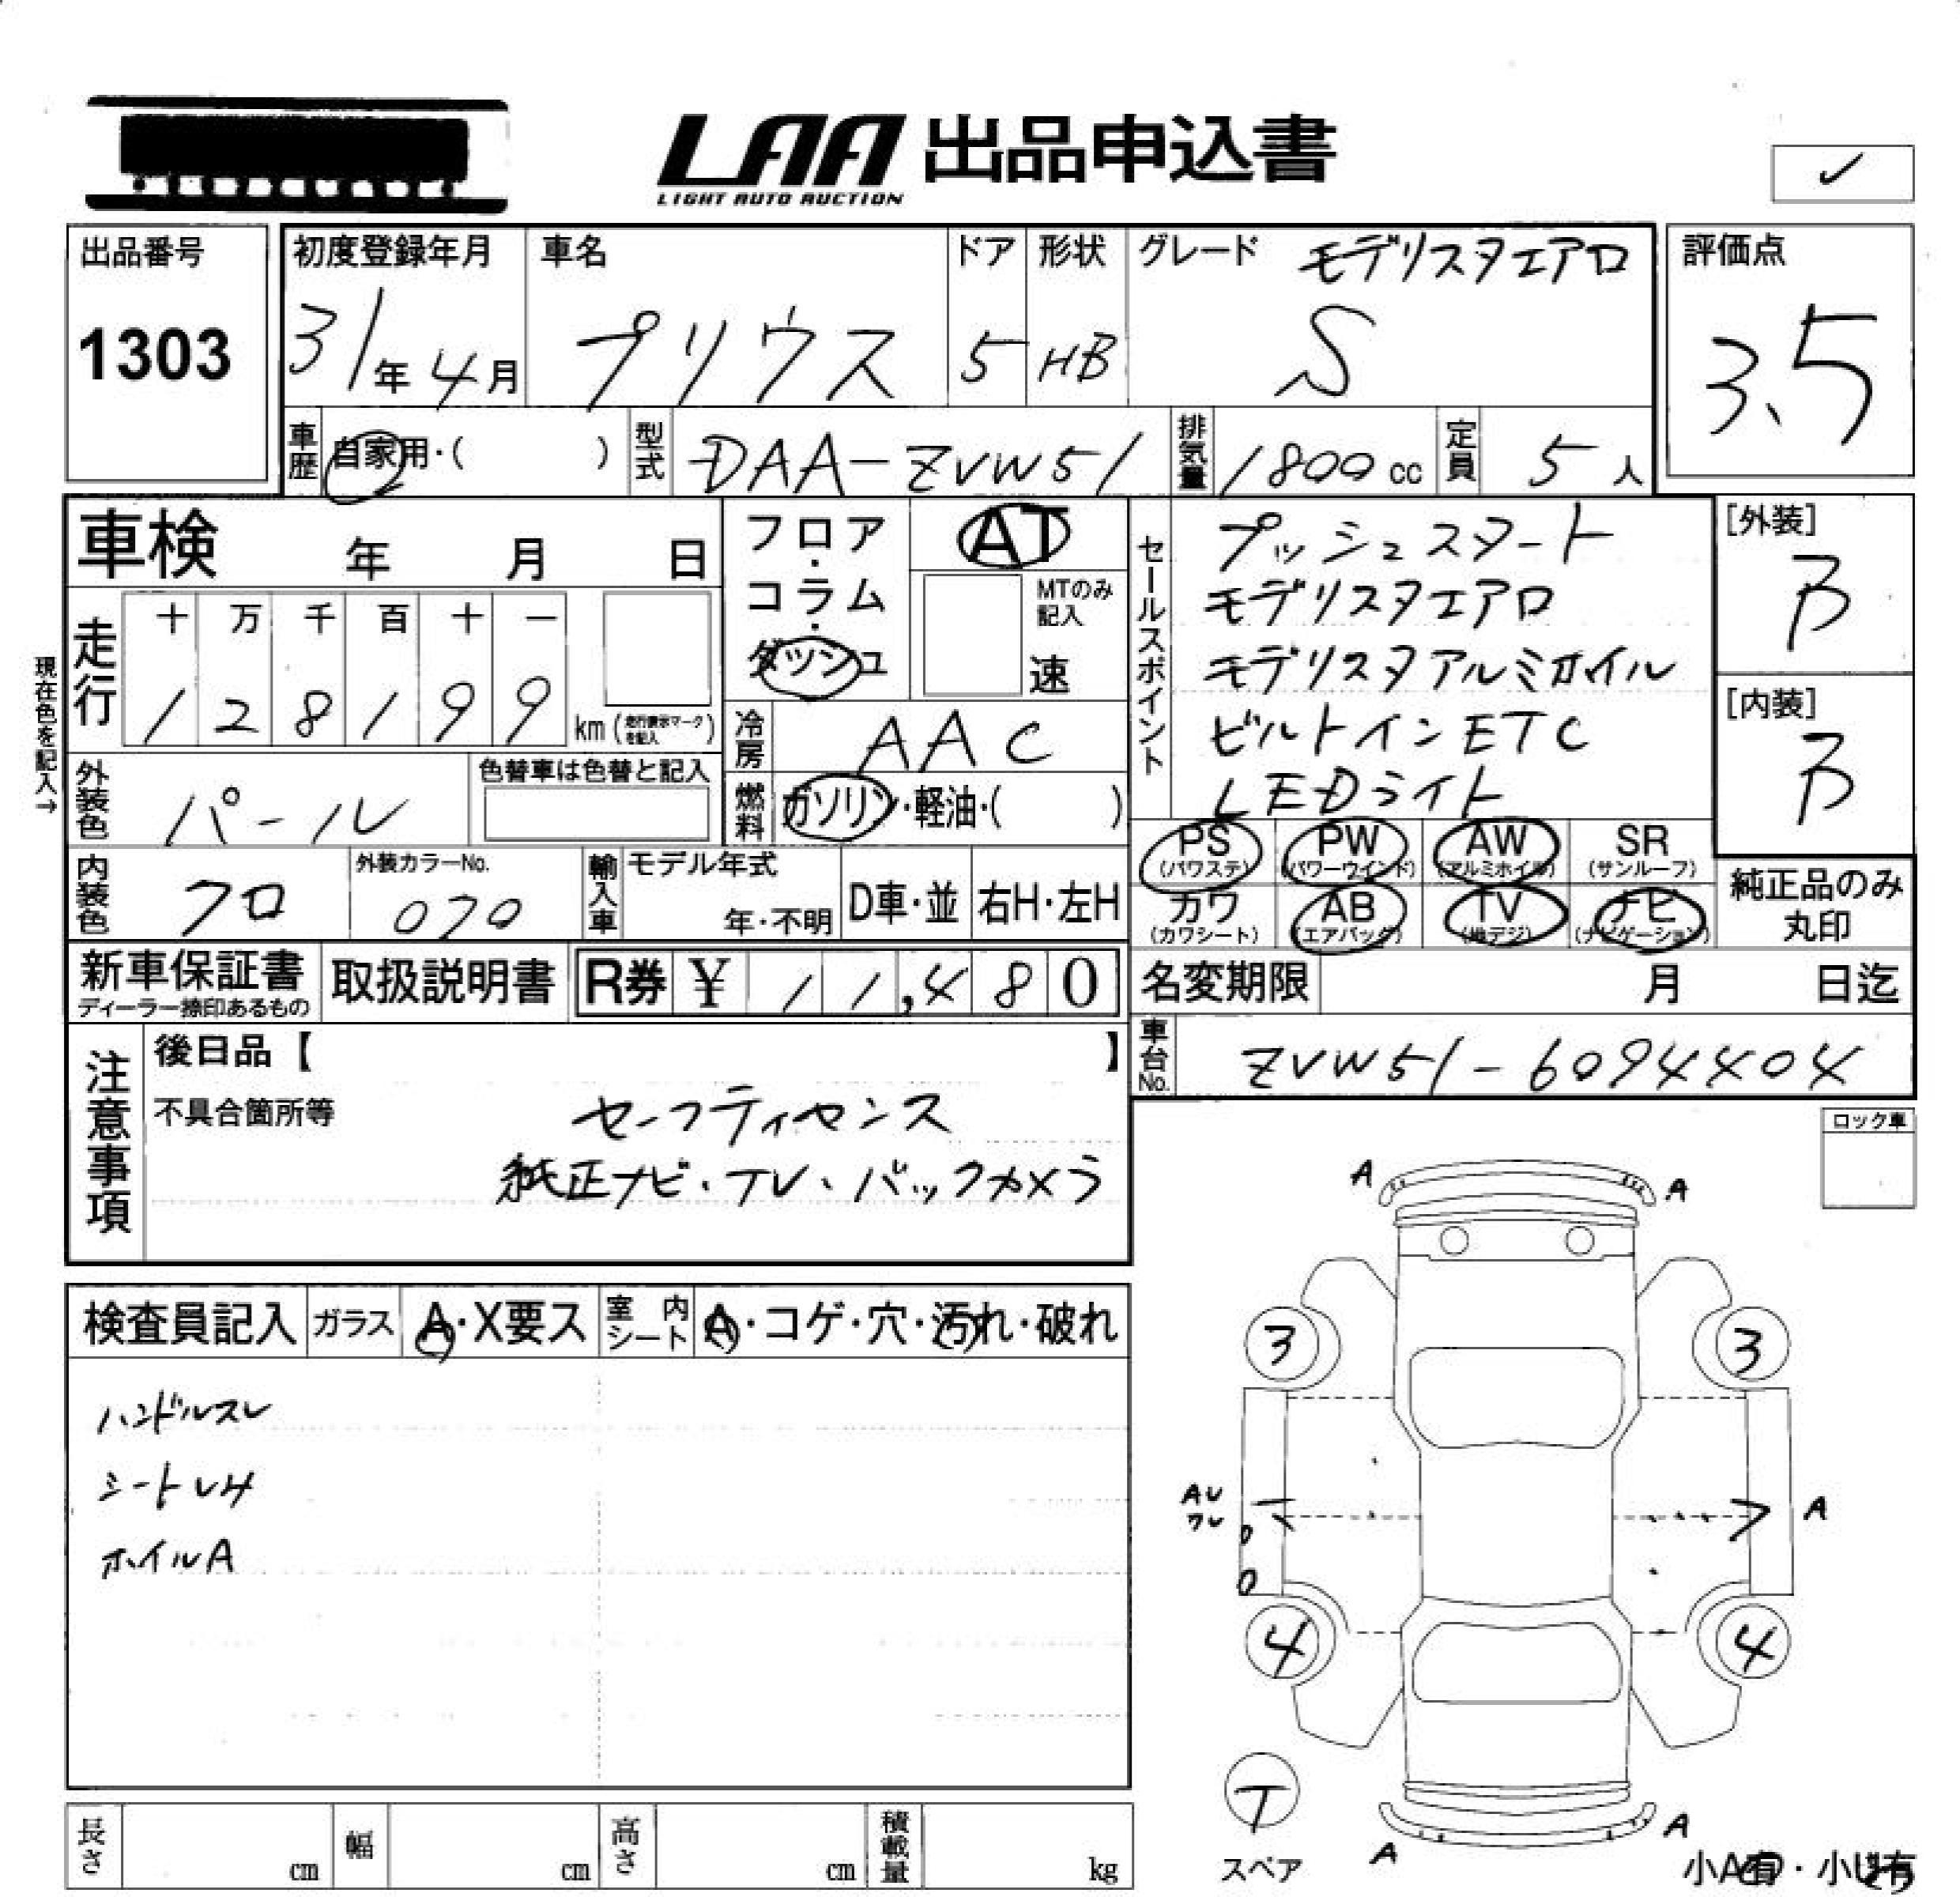 LAA 出品申込書
LIGHT AUTO AUCTION
✓
出品番号
1303
初度登録年月
31年4月
車名
プリウス
ドア
5
形状
HB
グレード
モデリスタエアロ
S
評価点
3.5
車歴
自家用・( )
型式
DAA-ZVW51
排気量
1800cc
定員
5人
車検 年 月 日
フロア・コラム・ダッシュ
AT
MTのみ記入
速
セールスポイント
プッシュスタート
モデリスタエアロ
モデリスタアルミホイル
ビルトインETC
LEDライト
[外装]
B
[内装]
B
現在色を記入→
走行
十 万 千 百 十 一
1 2 8 1 9 9 km (走行表示マークを記入)
冷房
AAC
外装色
パール
色替車は色替と記入
燃料
ガソリン・軽油・( )
PS (パワステ)
PW (パワーウインド)
AW (アルミホイル)
SR (サンルーフ)
カワ (カワシート)
AB (エアバッグ)
TV (地デジ)
ナビ (ナビゲーション)
純正品のみ
丸印
内装色
クロ
外装カラーNo.
070
輸入車
モデル年式
年・不明
D車・並
右H・左H
新車保証書
ディーラー捺印あるもの
取扱説明書
R券 ¥ 11,480
名変期限 月 日迄
車台No.
ZVW51-6094404
注意事項
後日品【 】
不具合箇所等
セーフティセンス
純正ナビ・TV・バックカメラ
ロック車
検査員記入
ガラス
A・X要ス
室内シート
A・コゲ・穴・汚れ・破れ
ハンドルスレ
シートレ
ホイルA
A A
3 3
AU
A
4 4
T
スペア
A A
小A有・小U有
長さ cm
幅 cm
高さ cm
積載量 kg